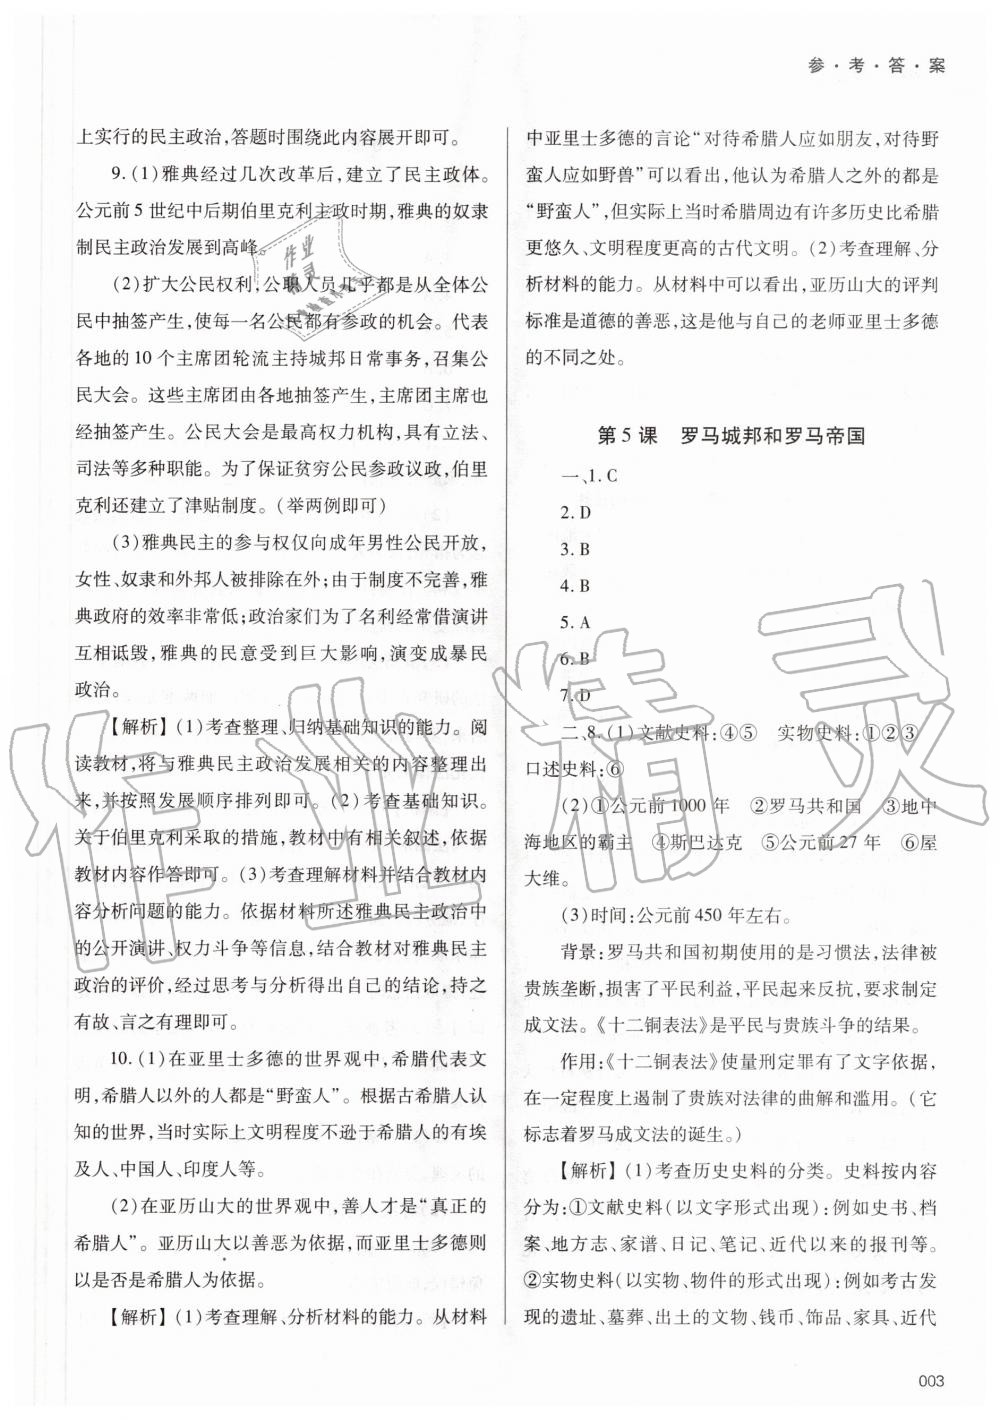 参·考·答·案
上实行的民主政治,答题时围绕此内容展开即可。
9.(1)雅典经过几次改革后,建立了民主政体。
公元前5世纪中后期伯里克利主政时期,雅典的奴隶
制民主政治发展到高峰。
(2)扩大公民权利,公职人员几乎都是从全体公
民中抽签产生,使每一名公民都有参政的机会。代表
各地的10个主席团轮流主持城邦日常事务,召集公
民大会。这些主席团由各地抽签产生,主席团主席也
经抽签产生。公民大会是最高权力机构,具有立法、
司法等多种职能。为了保证贫穷公民参政议政,伯里
克利还建立了津贴制度。(举两例即可)
(3)雅典民主的参与权仅向成年男性公民开放,
女性、奴隶和外邦人被排除在外;由于制度不完善,雅
典政府的效率非常低;政治家们为了名利经常借演讲
互相诋毁,雅典的民意受到巨大影响,演变成暴民
政治。
【解析】(1)考查整理、归纳基础知识的能力。阅
读教材,将与雅典民主政治发展相关的内容整理出
来,并按照发展顺序排列即可。(2)考查基础知识。
关于伯里克利采取的措施,教材中有相关叙述,依据
教材内容作答即可。(3)考查理解材料并结合教材内
容分析问题的能力。依据材料所述雅典民主政治中
的公开演讲、权力斗争等信息,结合教材对雅典民主
政治的评价,经过思考与分析得出自己的结论,持之
有故、言之有理即可。
10.(1)在亚里士多德的世界观中,希腊代表文
明,希腊人以外的人都是“野蛮人”。根据古希腊人认
知的世界,当时实际上文明程度不逊于希腊人的有埃
及人、中国人、印度人等。
(2)在亚历山大的世界观中,善人才是“真正的
希腊人”。亚历山大以善恶为依据,而亚里士多德则
以是否是希腊人为依据。
【解析】(1)考查理解、分析材料的能力。从材料
中亚里士多德的言论“对待希腊人应如朋友,对待野
蛮人应如野兽”可以看出,他认为希腊人之外的都是
“野蛮人”,但实际上当时希腊周边有许多历史比希腊
更悠久、文明程度更高的古代文明。(2)考查理解、分
析材料的能力。从材料中可以看出,亚历山大的评判
标准是道德的善恶,这是他与自己的老师亚里士多德
的不同之处。
第5课 罗马城邦和罗马帝国
一、1.C
2.D
3.B
4.B
5.A
6.B
7.D
二、8.(1)文献史料:④⑤ 实物史料:①②③
口述史料:⑥
(2)①公元前1000年 ②罗马共和国 ③地中
海地区的霸主 ④斯巴达克 ⑤公元前27年 ⑥屋
大维。
(3)时间:公元前450年左右。
背景:罗马共和国初期使用的是习惯法,法律被
贵族垄断,损害了平民利益,平民起来反抗,要求制定
成文法。《十二铜表法》是平民与贵族斗争的结果。
作用:《十二铜表法》使量刑定罪有了文字依据,
在一定程度上遏制了贵族对法律的曲解和滥用。(它
标志着罗马成文法的诞生。)
【解析】(1)考查历史史料的分类。史料按内容
分为:①文献史料(以文字形式出现):例如史书、档
案、地方志、家谱、日记、笔记、近代以来的报刊等。
②实物史料(以实物、物件的形式出现):例如考古发
现的遗址、墓葬、出土的文物、钱币、饰品、家具、近代
003
作业
精灵
作业精灵